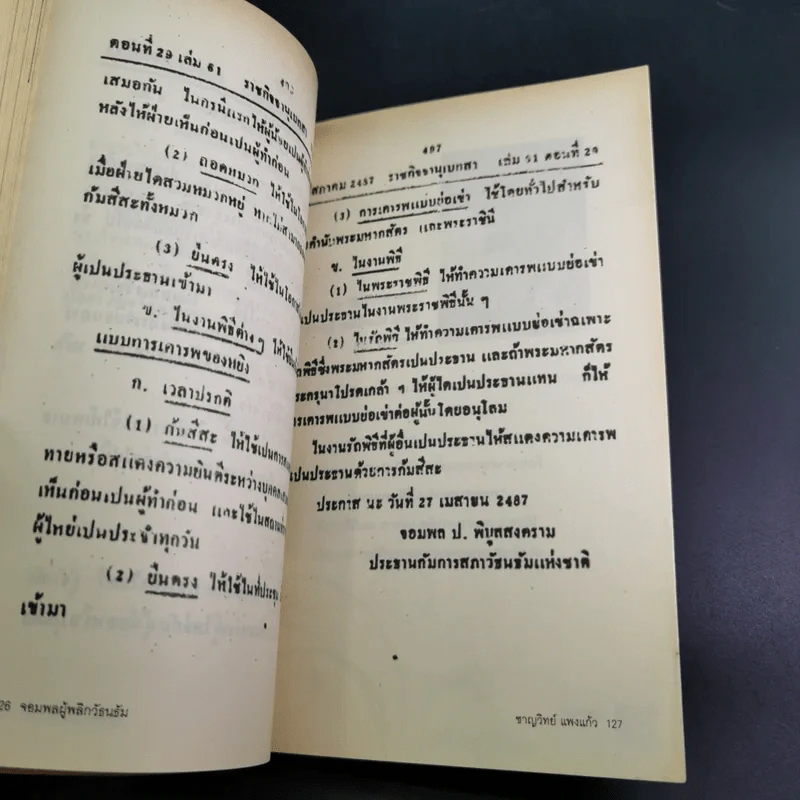 ตอนที่ 29 เล่ม 61 ราชกิจจานุเบกสา
เสมอกัน ในกรนีแรกให้ผู้น้อยเปนผู้
หลังไห้ฝ่ายเห็นก่อนเปนผู้ทำก่อน
(2) ถอดหมวก ไห้ไช้ใน
เมื่อฝ่ายไดสวมหมวกหยู่ หากไม่
ก้มสีสะทั้งหมวก
(3) ยืนตรง ไห้ไช้ใน
ผู้เปนประธานเข้ามา
ข. ในงานพิธีต่างๆ ไห้ไช้
แบบการเคารพของหยิง
ก. เวลาปรกติ
(1) ก้มสีสะ ไห้ไช้เปนการ
ทายหรือสแดงความยินดีระหว่างบุคคล
เห็นก่อนเปนผู้ทำก่อน และไช้ในสถานที่
ผู้ไหย่เปนประจำทุกวัน
(2) ยืนตรง ไห้ไช้ในที่ประชุม
เข้ามา
26 จอมพลผู้พลิกวัธนธัม
497
สภาคม 2487 ราชกิจจานุเบกสา เล่ม 61 ตอนที่ 29
(3) การเคารพแบบย่อเข่า ไช้โดยทั่วไปสำหรับ
คำนับพระมหากสัตร และพระราชินี
ข. ในงานพิธี
(1) ในพระราชพิธี ไห้ทำความเคารพแบบย่อเข่า
เปนประธานในงานพระราชพิธีนั้น ๆ
(2) ในรัถพิธี ไห้ทำความเคารพแบบย่อเข่าฉเพาะ
รัถพิธีซึ่งพระมหากสัตรเปนประธาน และถ้าพระมหากสัตร
ระกรุนาโปรดเกล้า ๆ ไห้ผู้ไดเปนประธานแทน ก็ไห้
การเคารพแบบย่อเข่าต่อผู้นั้นโดยอนุโลม
ในงานรัถพิธีที่ผู้อื่นเปนประธานไห้สแดงความเคารพ
เปนประธานด้วยการก้มสีสะ
ประกาส นะ วันที่ 27 เมสายน 2487
จอมพล ป. พิบูลสงคราม
ประธานกัมการสภาวัธนธัมแห่งชาติ
ชาญวิทย์ แพงแก้ว 127